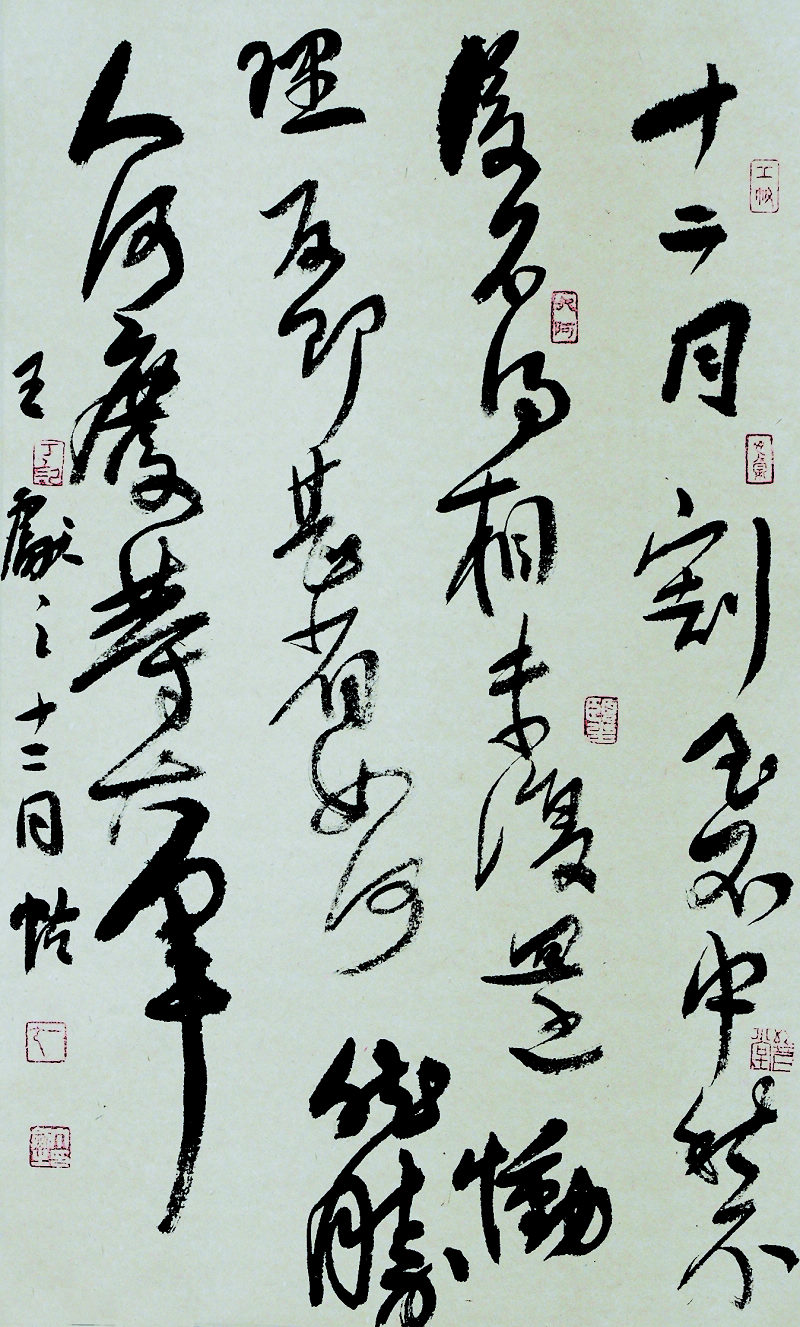 十二月割至不中秋不
復不得相未復還慟
理即甚省如何然勝
人何慶等大軍
王獻之十二月帖